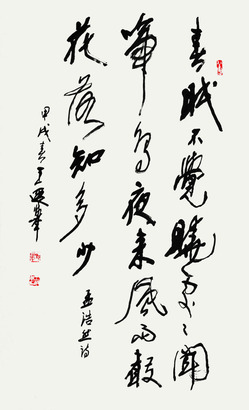 春眠不覺曉處々聞
啼鳥夜來風雨聲
花落知多少 孟浩然詩
甲戌春王遐舉